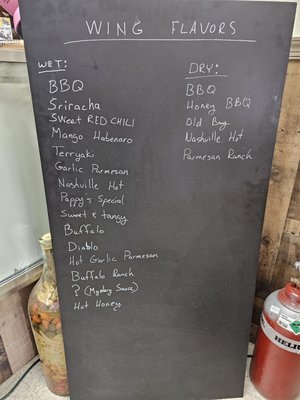 WING FLAVORS
WET:
BBQ
Sriracha
Sweet RED CHILI
Mango Habenaro
Terryaki
Garlic Parmesan
Nashville Hot
Pappy's Special
Sweet & tangy
Buffalo
Diablo
Hot Garlic Parmesan
Buffalo Ranch
? (Mystery Sauce)
Hot Honey
DRY:
BBQ
Honey BBQ
Old Bay
Nashville Hot
Parmesan Ranch
HELIU